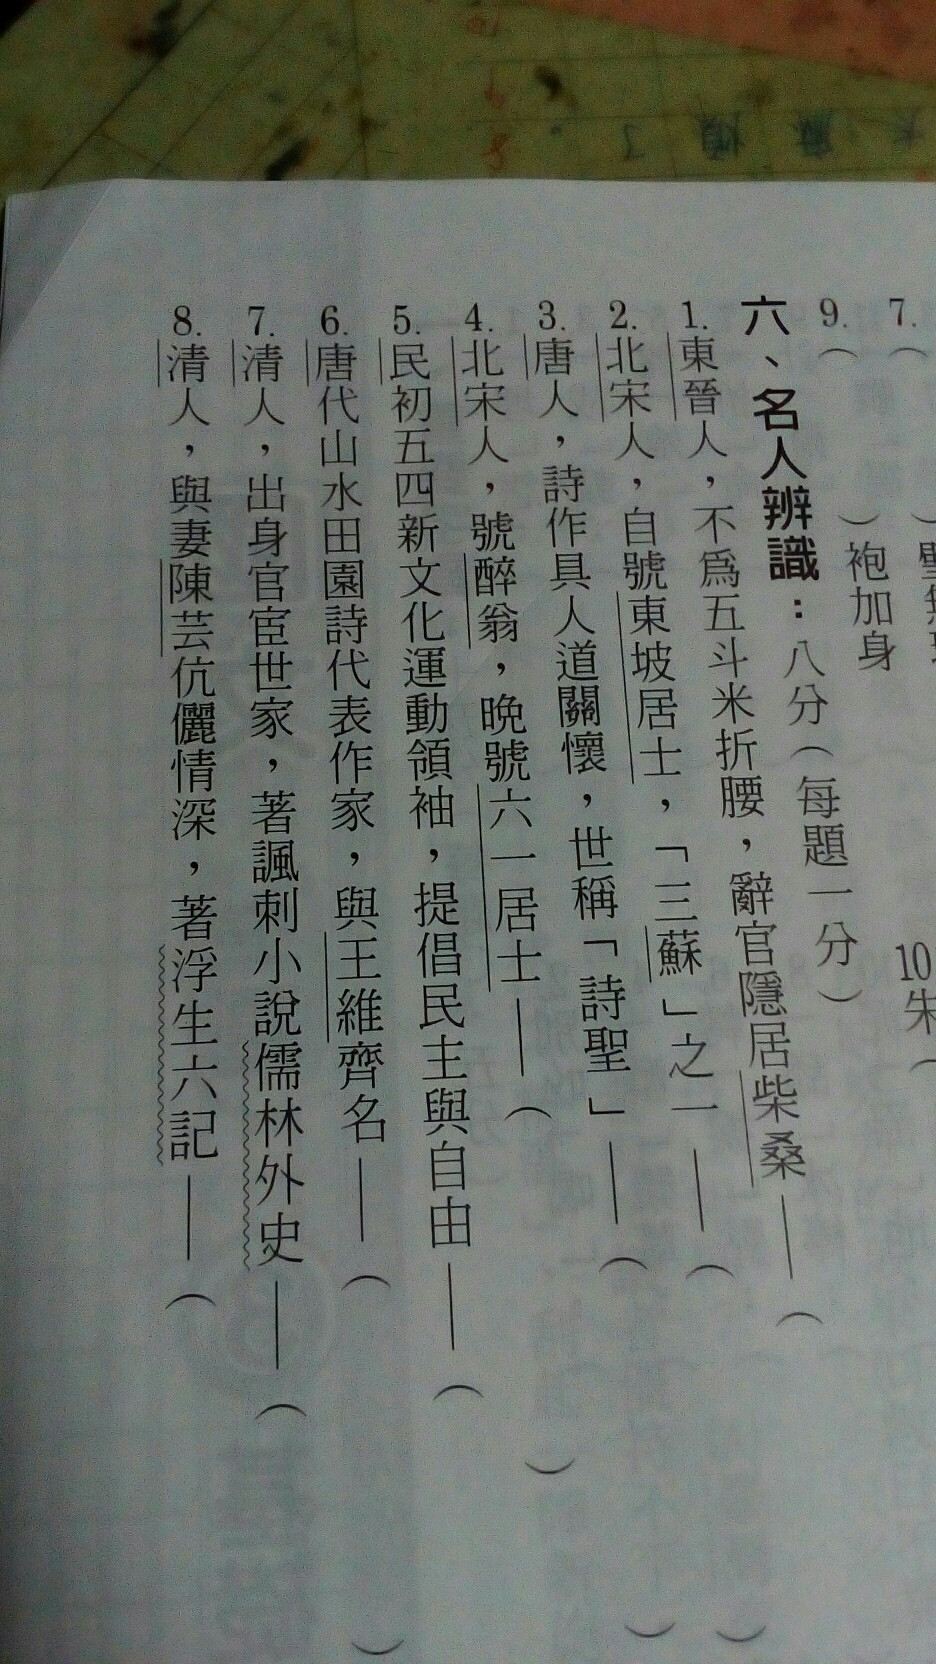 7.（
）
9.（　）袍加身
10.朱（
六、名人辨識：八分（每題一分）
1.東晉人，不為五斗米折腰，辭官隱居柴桑——（
2.北宋人，自號東坡居士，「三蘇」之一——（　）
3.唐人，詩作具人道關懷，世稱「詩聖」——（　）
4.北宋人，號醉翁，晚號六一居士——（　）
5.民初五四新文化運動領袖，提倡民主與自由——（
6.唐代山水田園詩代表作家，與王維齊名——（　）
7.清人，出身官宦世家，著諷刺小說儒林外史——（
8.清人，與妻陳芸伉儷情深，著浮生六記——（